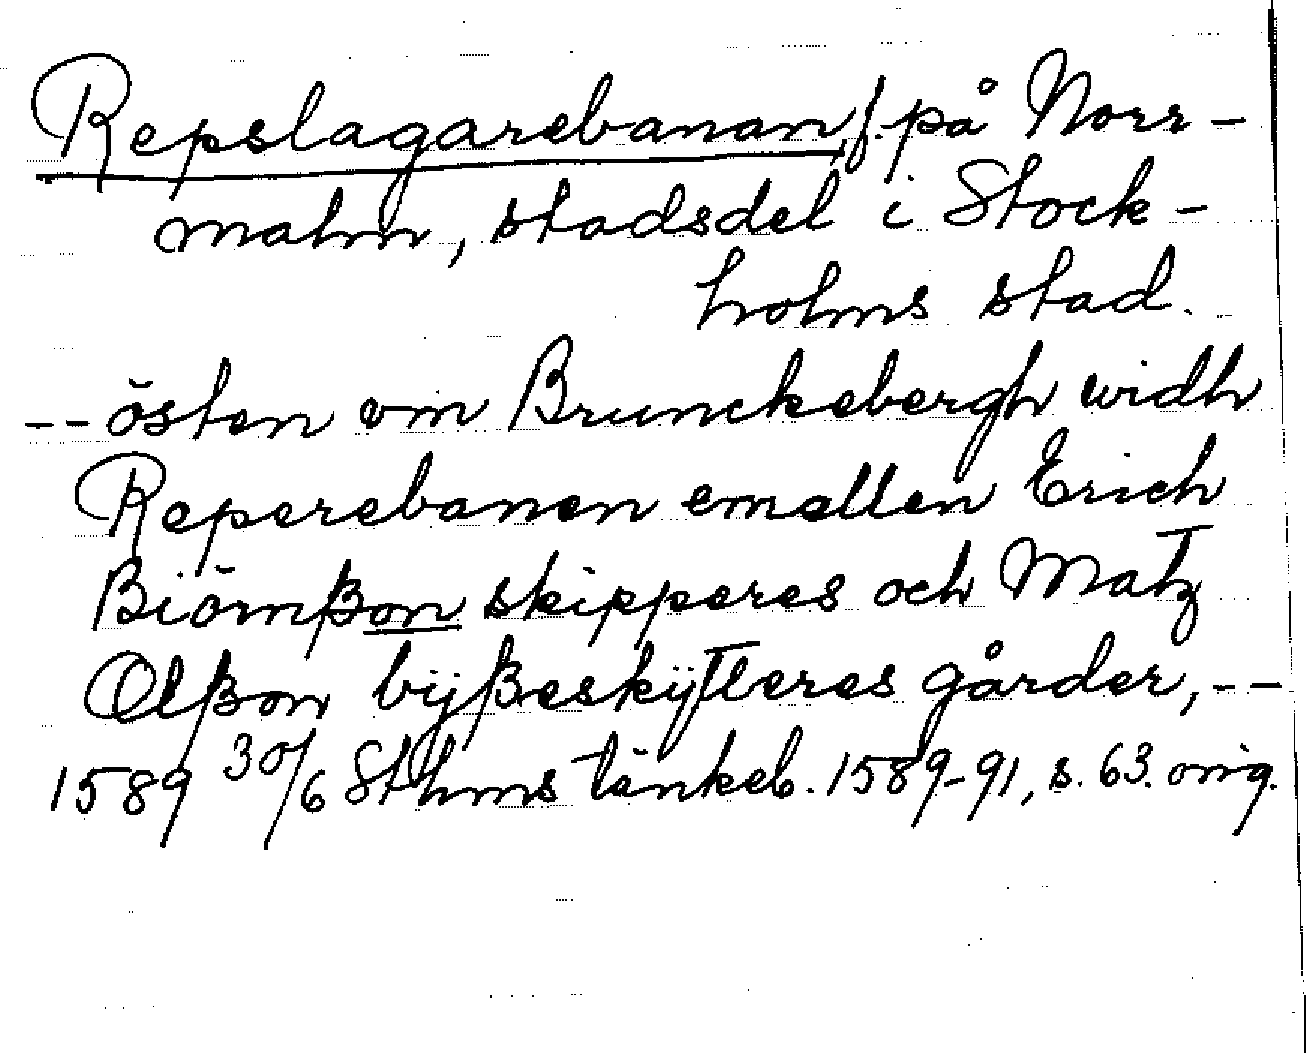 Repslagarebanan, f. på Norr-
malm, stadsdel i Stock-
holms stad.
-- östen om Brunckebergh widh
Reperebanen emellen Erich
Biörnßon skipperes och Matz
Olßon byßeskÿtteres gårder, --
1589 30/6 Sthms tänkeb. 1589-91, s. 63. orig.